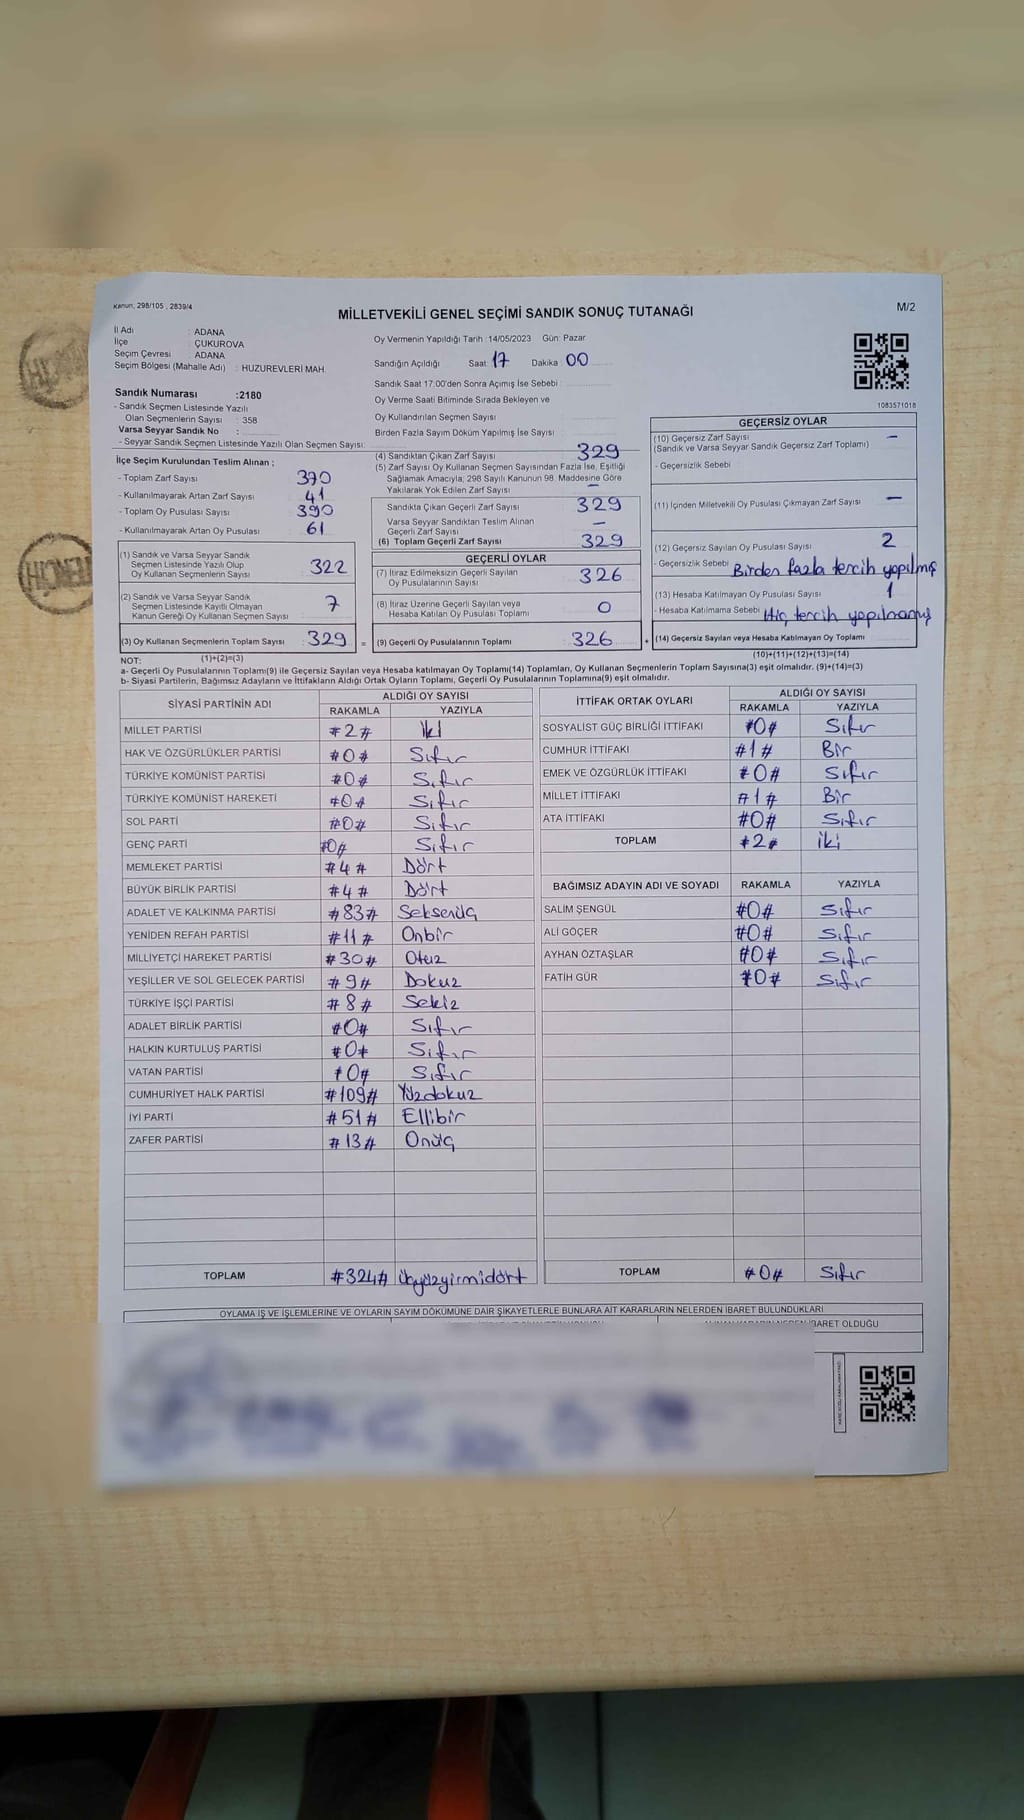 Kanun, 298/105 , 2839/4
MİLLETVEKİLİ GENEL SEÇİMİ SANDIK SONUÇ TUTANAĞI
M/2
İl Adı : ADANA
İlçe : ÇUKUROVA
Seçim Çevresi : ADANA
Seçim Bölgesi (Mahalle Adı) : HUZUREVLERİ MAH.
Sandık Numarası :2180
- Sandık Seçmen Listesinde Yazılı
Olan Seçmenlerin Sayısı : 358
Varsa Seyyar Sandık No :
- Seyyar Sandık Seçmen Listesinde Yazılı Olan Seçmen Sayısı:
Oy Vermenin Yapıldığı Tarih :14/05/2023 Gün: Pazar
Sandığın Açıldığı Saat 17 Dakika 00
Sandık Saat 17:00'den Sonra Açımış İse Sebebi
Oy Verme Saati Bitiminde Sırada Bekleyen ve
Oy Kullandırılan Seçmen Sayısı
Birden Fazla Sayım Döküm Yapılmış İse Sayısı
1083571018
İlçe Seçim Kurulundan Teslim Alınan ;
- Toplam Zarf Sayısı : 370
- Kullanılmayarak Artan Zarf Sayısı : 41
- Toplam Oy Pusulası Sayısı : 390
- Kullanılmayarak Artan Oy Pusulası : 61
(1) Sandık ve Varsa Seyyar Sandık
Seçmen Listesinde Yazılı Olup
Oy Kullanan Seçmenlerin Sayısı : 322
(2) Sandık ve Varsa Seyyar Sandık
Seçmen Listesinde Kayıtlı Olmayan
Kanun Gereği Oy Kullanan Seçmen Sayısı : 7
(3) Oy Kullanan Seçmenlerin Toplam Sayısı : 329 =
(1)+(2)=(3)
(4) Sandıktan Çıkan Zarf Sayısı 329
(5) Zarf Sayısı Oy Kullanan Seçmen Sayısından Fazla İse, Eşitliği
Sağlamak Amacıyla, 298 Sayılı Kanunun 98. Maddesine Göre
Yakılarak Yok Edilen Zarf Sayısı –
Sandıkta Çıkan Geçerli Zarf Sayısı : 329
Varsa Seyyar Sandıktan Teslim Alınan
Geçerli Zarf Sayısı : –
(6) Toplam Geçerli Zarf Sayısı : 329
GEÇERLİ OYLAR
(7) İtiraz Edilmeksizin Geçerli Sayılan
Oy Pusulalarının Sayısı : 326
(8) İtiraz Üzerine Geçerli Sayılan veya
Hesaba Katılan Oy Pusulası Toplamı : 0
(9) Geçerli Oy Pusulalarının Toplamı : 326 +
GEÇERSİZ OYLAR
(10) Geçersiz Zarf Sayısı –
(Sandık ve Varsa Seyyar Sandık Geçersiz Zarf Toplamı)
- Geçersizlik Sebebi
(11) İçinden Milletvekili Oy Pusulası Çıkmayan Zarf Sayısı –
(12) Geçersiz Sayılan Oy Pusulası Sayısı 2
- Geçersizlik Sebebi Birden fazla tercih yapılmış
(13) Hesaba Katılmayan Oy Pusulası Sayısı 1
- Hesaba Katılmama Sebebi Hiç tercih yapılmamış
(14) Geçersiz Sayılan veya Hesaba Katılmayan Oy Toplamı
(10)+(11)+(12)+(13)=(14)
NOT:
a- Geçerli Oy Pusulalarının Toplamı(9) ile Geçersiz Sayılan veya Hesaba katılmayan Oy Toplamı(14) Toplamları, Oy Kullanan Seçmenlerin Toplam Sayısına(3) eşit olmalıdır. (9)+(14)=(3)
b- Siyasi Partilerin, Bağımsız Adayların ve İttifakların Aldığı Ortak Oyların Toplamı, Geçerli Oy Pusulalarının Toplamına(9) eşit olmalıdır.
SİYASİ PARTİNİN ADI ALDIĞI OY SAYISI
RAKAMLA YAZIYLA
MİLLET PARTİSİ #2# İki
HAK VE ÖZGÜRLÜKLER PARTİSİ #0# Sıfır
TÜRKİYE KOMÜNİST PARTİSİ #0# Sıfır
TÜRKİYE KOMÜNİST HAREKETİ #0# Sıfır
SOL PARTİ #0# Sıfır
GENÇ PARTİ #0# Sıfır
MEMLEKET PARTİSİ #4# Dört
BÜYÜK BİRLİK PARTİSİ #4# Dört
ADALET VE KALKINMA PARTİSİ #83# Seksenüç
YENİDEN REFAH PARTİSİ #11# Onbir
MİLLİYETÇİ HAREKET PARTİSİ #30# Otuz
YEŞİLLER VE SOL GELECEK PARTİSİ #9# Dokuz
TÜRKİYE İŞÇİ PARTİSİ #8# Sekiz
ADALET BİRLİK PARTİSİ #0# Sıfır
HALKIN KURTULUŞ PARTİSİ #0# Sıfır
VATAN PARTİSİ #0# Sıfır
CUMHURİYET HALK PARTİSİ #109# Yüzdokuz
İYİ PARTİ #51# Ellibir
ZAFER PARTİSİ #13# Onüç
TOPLAM #324# üçyüzyirmidört
İTTİFAK ORTAK OYLARI ALDIĞI OY SAYISI
RAKAMLA YAZIYLA
SOSYALİST GÜÇ BİRLİĞİ İTTİFAKI #0# Sıfır
CUMHUR İTTİFAKI #1# Bir
EMEK VE ÖZGÜRLÜK İTTİFAKI #0# Sıfır
MİLLET İTTİFAKI #1# Bir
ATA İTTİFAKI #0# Sıfır
TOPLAM #2# iki
BAĞIMSIZ ADAYIN ADI VE SOYADI RAKAMLA YAZIYLA
SALİM ŞENGÜL #0# Sıfır
ALİ GÖÇER #0# Sıfır
AYHAN ÖZTAŞLAR #0# Sıfır
FATİH GÜR #0# Sıfır
TOPLAM #0# Sıfır
OYLAMA İŞ VE İŞLEMLERİNE VE OYLARIN SAYIM DÖKÜMÜNE DAİR ŞİKAYETLERLE BUNLARA AİT KARARLARIN NELERDEN İBARET BULUNDUKLARI
İBARET OLDUĞU